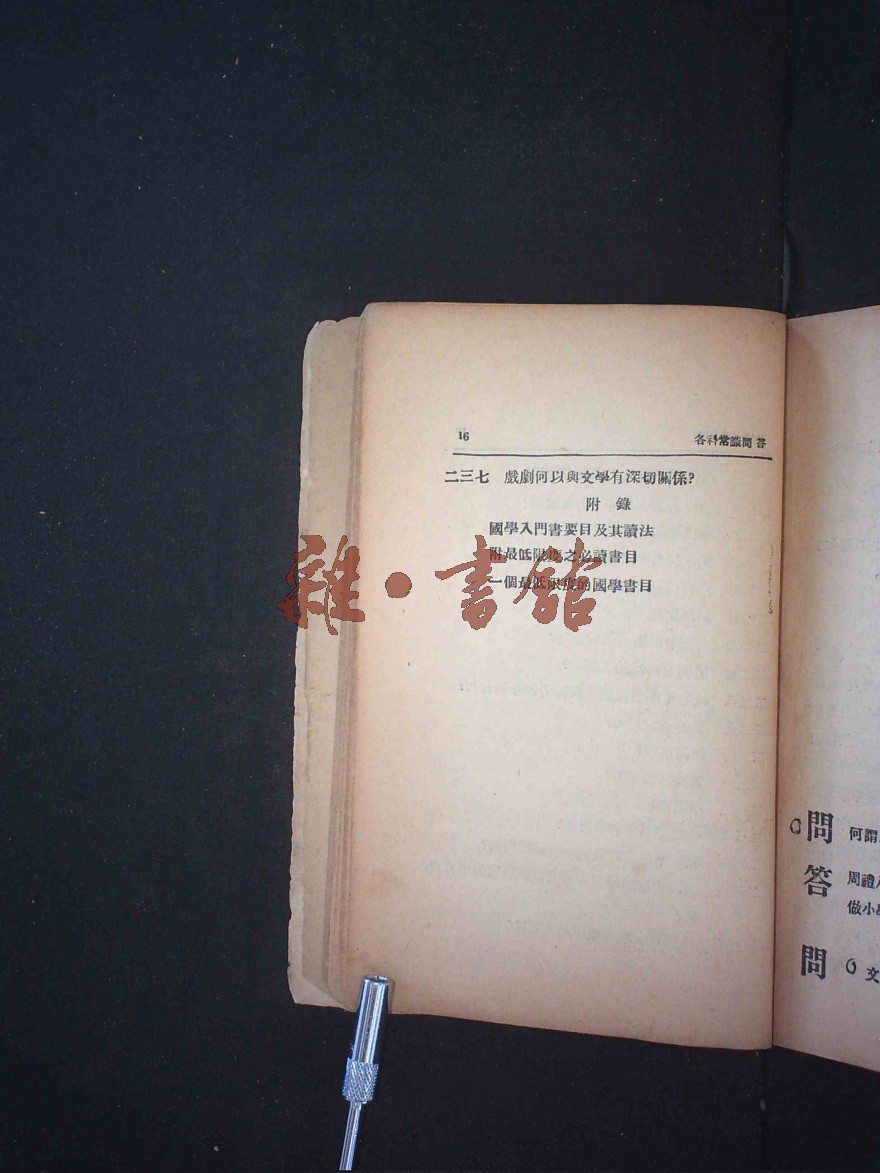 16
各科常識問答
二三七 戲劇何以與文學有深切關係?
附錄
國學入門書要目及其讀法
附最低限度之必讀書目
一個最低限度的國學書目
雜·書館
問 何謂
答 周禮
做小
問 文